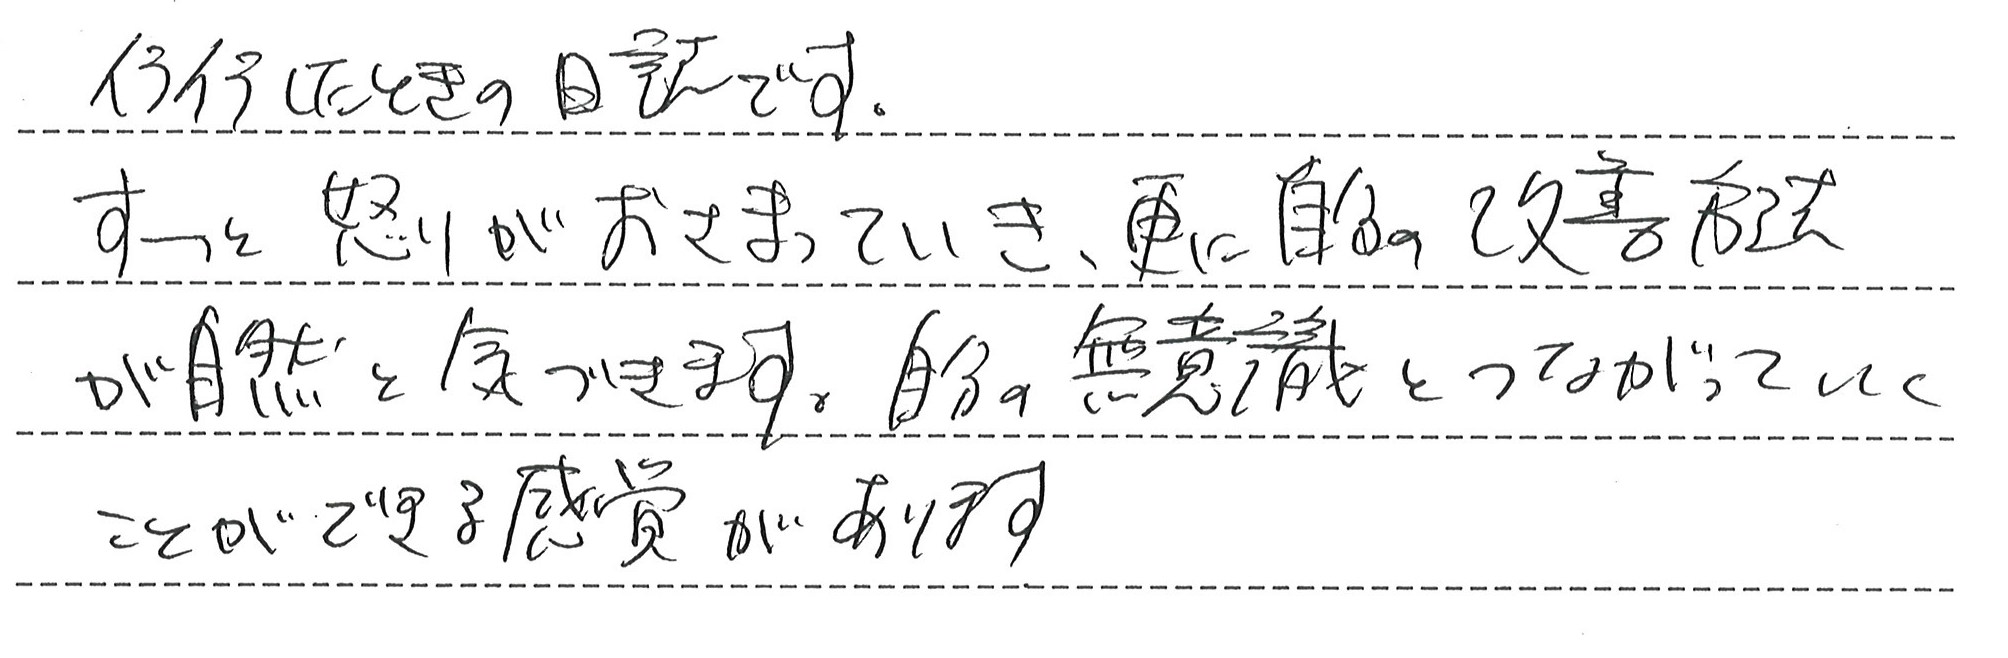 イライラしたときの日誌です。
すーっと怒りがおさまっていき、更に自分の改善方法
が自然と気づきます。自分の無意識とつながっていく
ことができる感覚があります